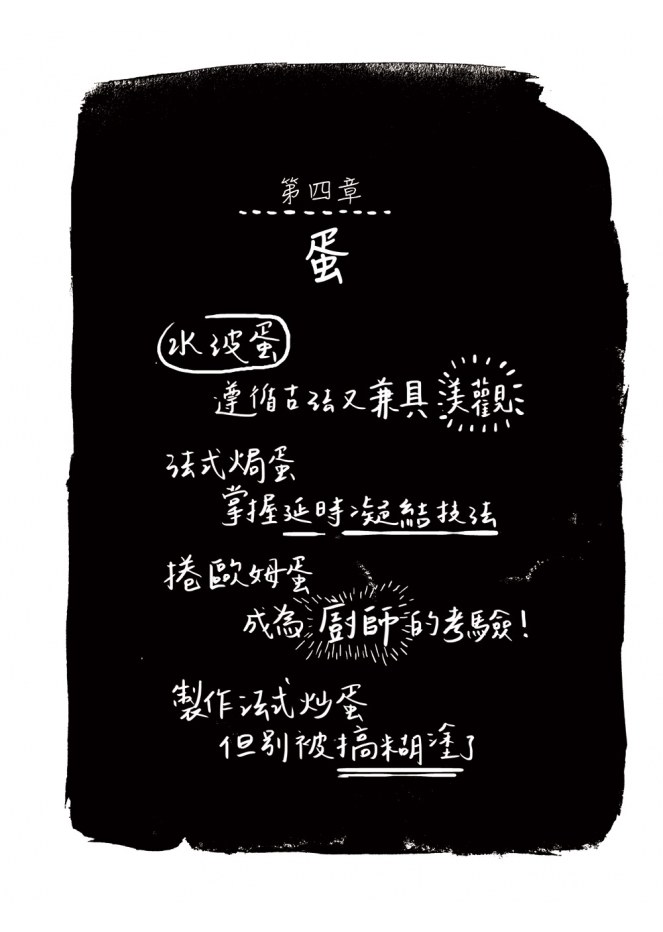 第四章
蛋
水波蛋
遵循古法又兼具美觀
法式焗蛋
掌握延時凝結技法
捲歐姆蛋
成為廚師的考驗！
製作法式炒蛋
但別被搞糊塗了